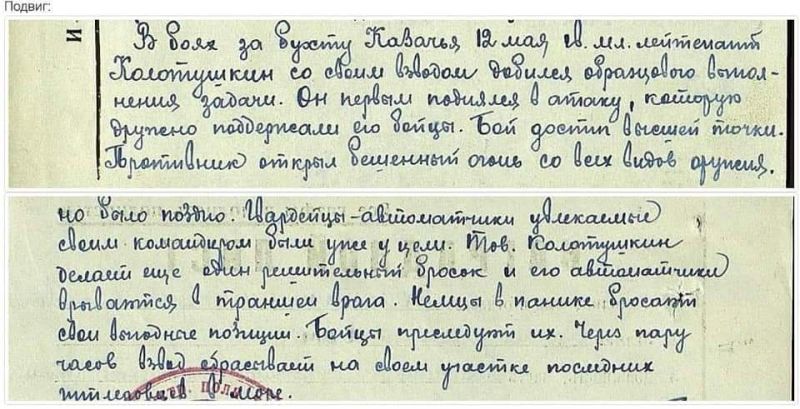 Подвиг:
И
В боях за бухту Казачья 12 мая гв. мл. лейтенант
Колотушкин со своим взводом добился образцового выпол-
нения задачи. Он первым поднялся в атаку, которую
дружено поддержали его бойцы. Бой достиг высшей точки.
Противник открыл бешенный огонь со всех видов оружия,
но было поздно. Гвардейцы-автоматчики увлекаемые
своим командиром были уже у цели. Тов. Колотушкин
делает еще один решительный бросок и его автоматчики
врываются в траншеи врага. Немцы в панике бросают
свои выгодные позиции. Бойцы преследуют их. Через пару
часов взвод сбрасывает на своем участке последних
гитлеровцев в море.